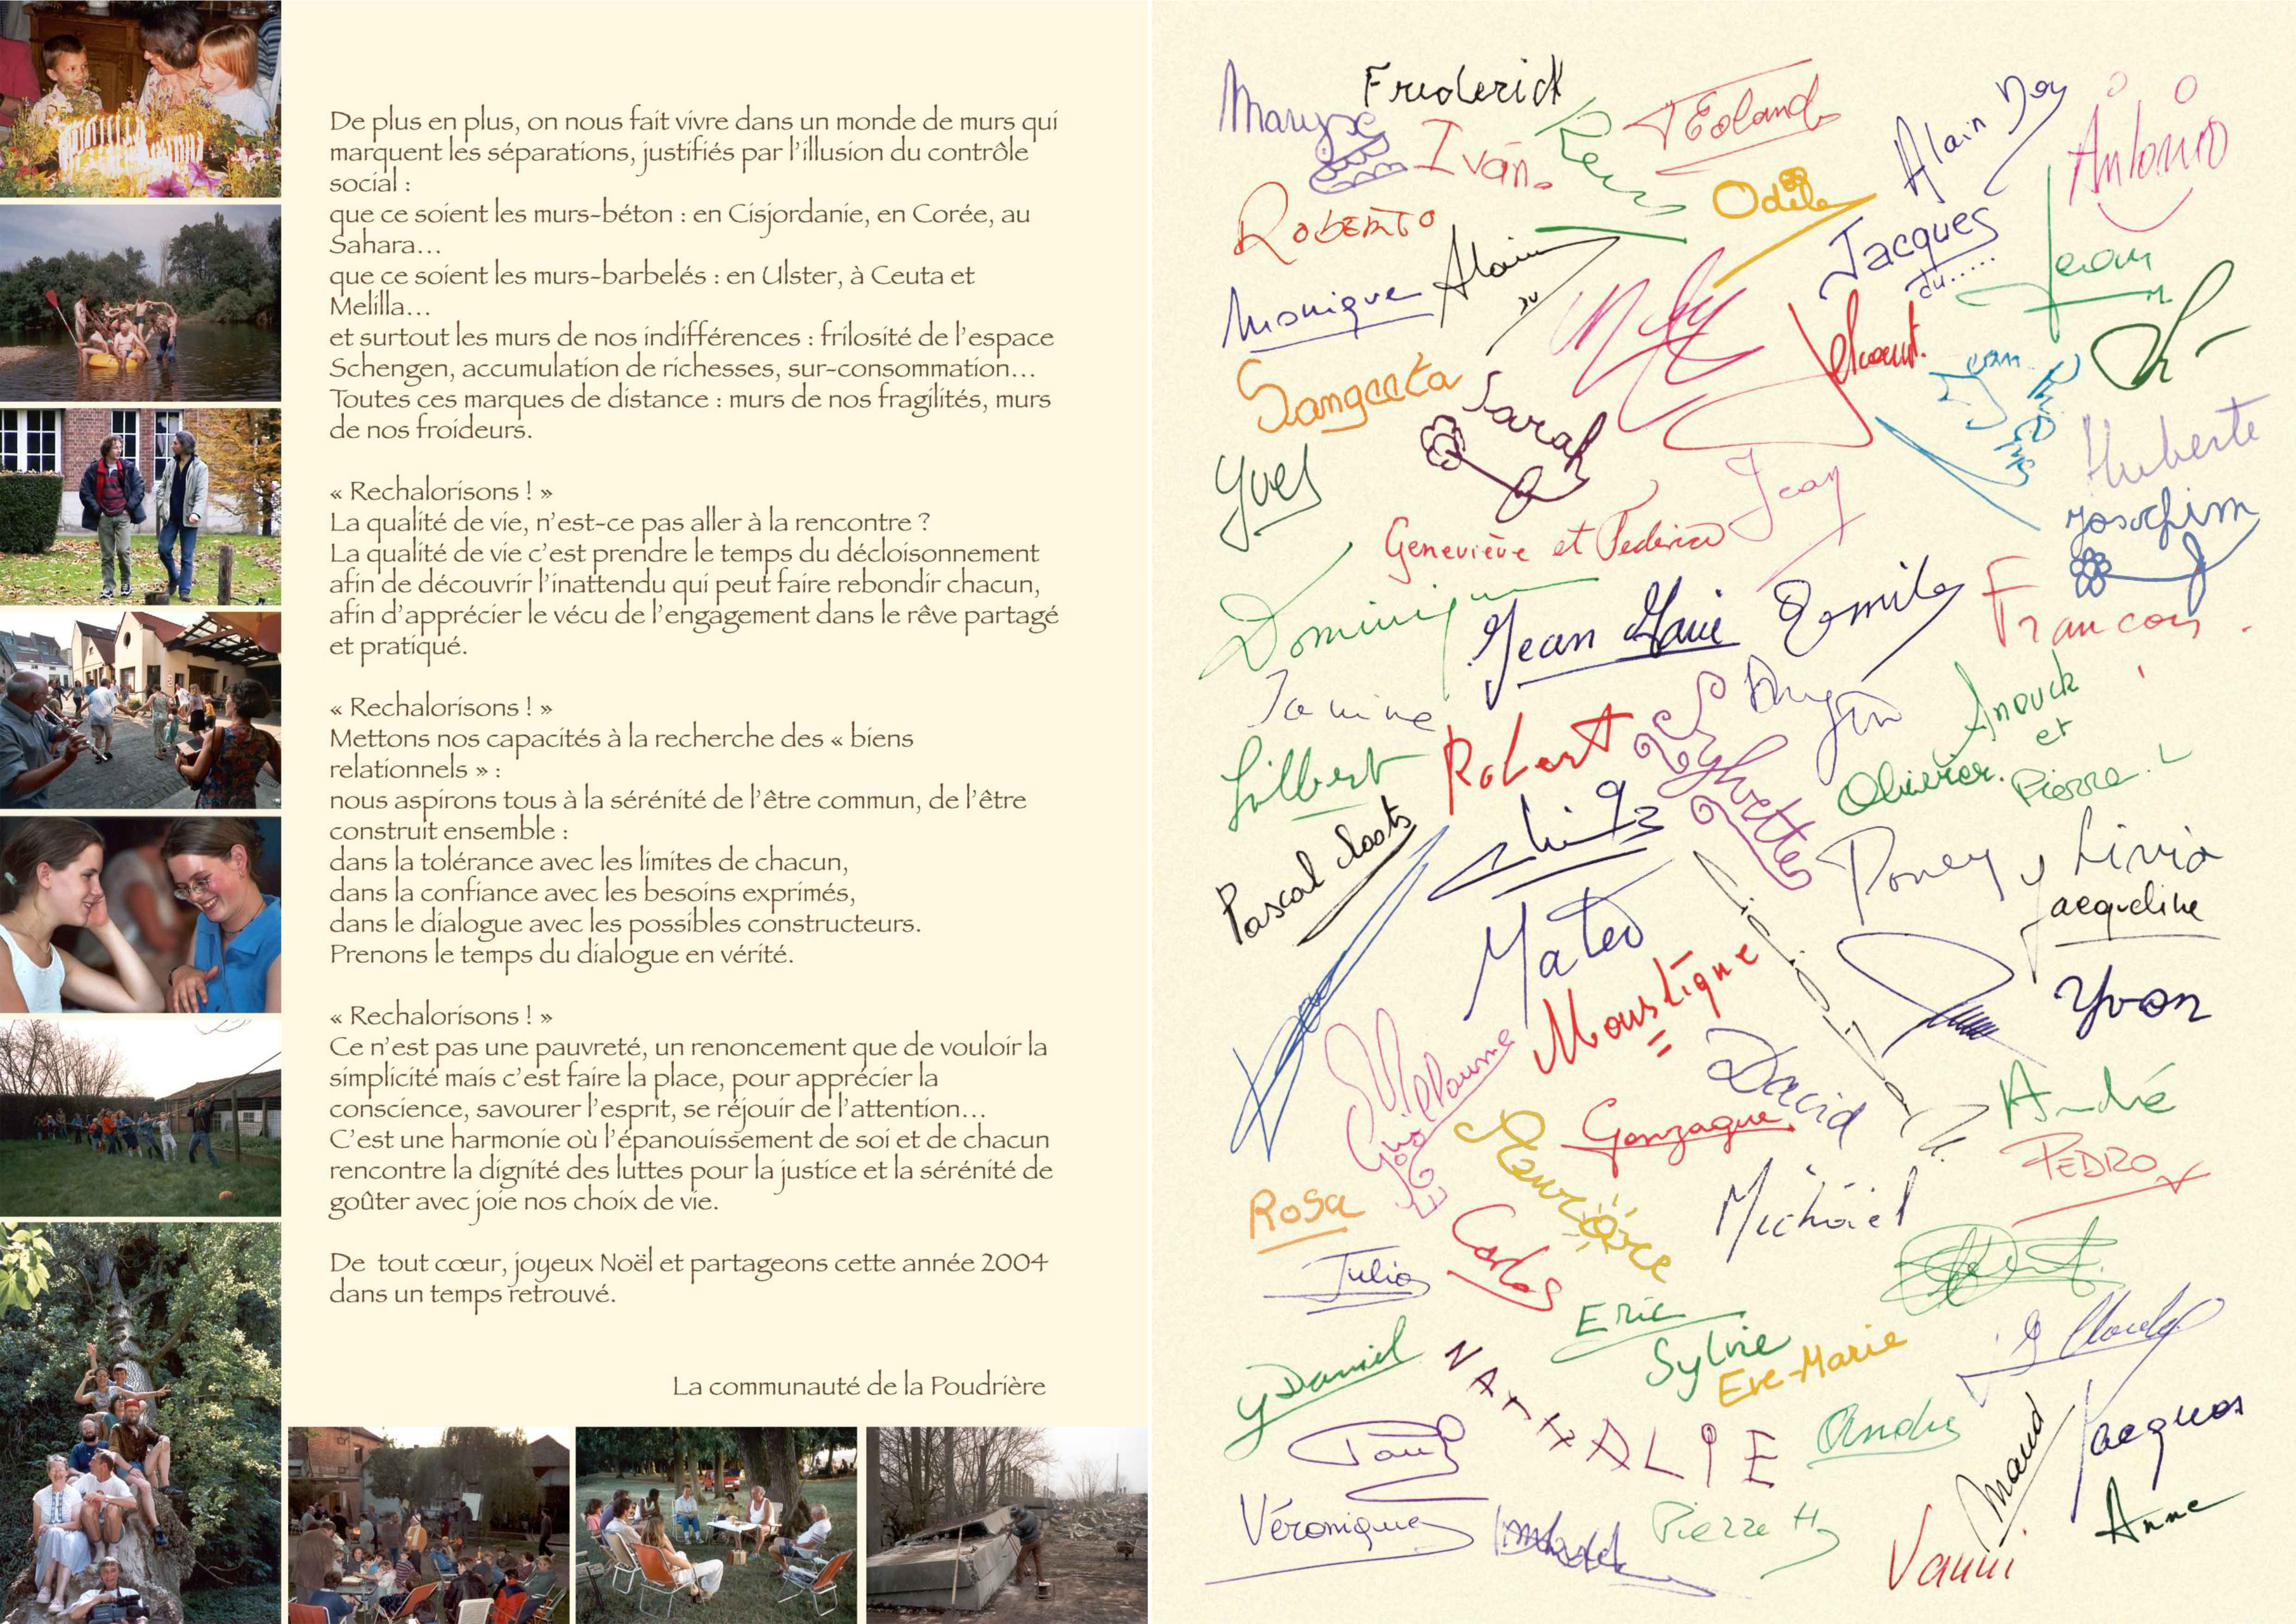 De plus en plus, on nous fait vivre dans un monde de murs qui
marquent les séparations, justifiés par l'illusion du contrôle
social :
que ce soient les murs-béton : en Cisjordanie, en Corée, au
Sahara...
que ce soient les murs-barbelés : en Ulster, à Ceuta et
Melilla...
et surtout les murs de nos indifférences : frilosité de l'espace
Schengen, accumulation de richesses, sur-consommation...
Toutes ces marques de distance : murs de nos fragilités, murs
de nos froideurs.
« Rechalorisons ! »
La qualité de vie, n'est-ce pas aller à la rencontre ?
La qualité de vie c'est prendre le temps du décloisonnement
afin de découvrir l'inattendu qui peut faire rebondir chacun,
afin d'apprécier le vécu de l'engagement dans le rêve partagé
et pratiqué.
« Rechalorisons ! »
Mettons nos capacités à la recherche des « biens
relationnels » :
nous aspirons tous à la sérénité de l'être commun, de l'être
construit ensemble :
dans la tolérance avec les limites de chacun,
dans la confiance avec les besoins exprimés,
dans le dialogue avec les possibles constructeurs.
Prenons le temps du dialogue en vérité.
« Rechalorisons ! »
Ce n'est pas une pauvreté, un renoncement que de vouloir la
simplicité mais c'est faire la place, pour apprécier la
conscience, savourer l'esprit, se réjouir de l'attention...
C'est une harmonie où l'épanouissement de soi et de chacun
rencontre la dignité des luttes pour la justice et la sérénité de
goûter avec joie nos choix de vie.
De tout cœur, joyeux Noël et partageons cette année 2004
dans un temps retrouvé.
La communauté de la Poudrière
Maryse
Frederick
Iván
Alain
Antonio
Roberto
Odile
Jacques
du.....
Jean
Monique
Alain
Sangeeta
Sarah
Yves
Jean
Huberte
Geneviève et Federico
Jean
Joachim
Dominique
Jean Marie
Emile
Francois
Janine
Robert
Anouck
et
Olivier.
Pierre. L
Gilbert
Pascal cloots
Poney y Livia
Jacqueline
Mateo
Moustique
Yvon
Guillaume
David
André
Gonzague
PEDRO
Rosa
Michaël
Julia
Carlos
Eric
Sylvie
Eve-Marie
Daniel
NATHALIE
André
Maud
Jacques
Paul
Véronique
Pierre H
Vanni
Anne